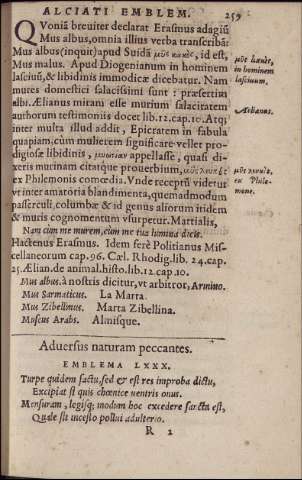 ALCIATI EMBLEM. 259
Quoniā breuiter declarat Erasmus adagiū
Mus albus, omnia illius verba transcribā:
Mus albus (inquit) apud Suidā μῦς λευκὸς, id est,
Mus malus. Apud Diogenianum in hominem
lasciuū, & libidinis immodicæ dicebatur. Nam
mures domestici salacissimi sunt: præsertim
albi. Ælianus miram esse murium salacitatem
authorum testimoniis docet lib. 12. cap. 10. Atq;
inter multa illud addit, Epicratem in fabula
quapiam, cùm mulierem significare vellet pro-
digiosæ libidinis, appellasse, quasi di-
xeris murinam citatque prouerbium, μῦς λευκὸς
ex Philemonis comœdia. Vnde receptū videtur
vt inter amatoria blandimenta, quemadmodum
passerculi, columbæ & id genus aliorum itidem
& muris cognomentum vsurpetur. Martialis,
Nam cùm me murem, cùm me tua lumina dicis.
Hactenus Erasmus. Idem ferè Politianus Mis-
cellaneorum cap. 96. Cæl. Rhodig. lib. 24. cap.
25. Ælian. de animal. histo. lib. 12. cap. 10.
Mus albus, à nostris dicitur, vt arbitror, Armino.
Mus Sarmaticus. La Marta.
Mus Zibellinus. Marta Zibellina.
Muscus Arabs. Almisque.
μῦς λευκὸς,
in hominem
lasciuum.
Aelianus.
μῦς λευκὸς,
ex Phile-
mone.
Aduersus naturam peccantes.
EMBLEMA LXXX.
Turpe quidem factu, sed & est res improba dictu,
Excipiat si quis chœnice ventris onus.
Mensuram, legisq; modum hoc excedere sanctæ est,
Quale sit incesto pollui adulterio.
R 2